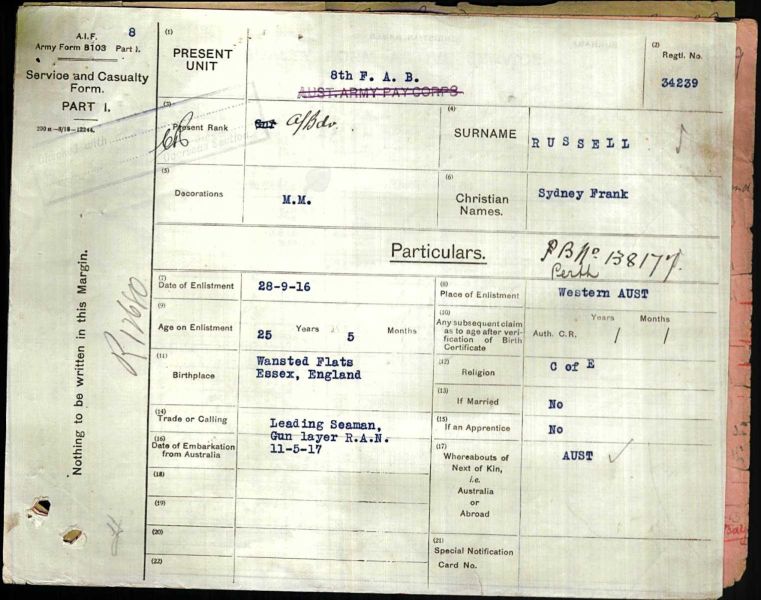 A.I.F. 8
Army Form B103 Part I.
Service and Casualty
Form.
PART I.
200m—8/18—12244.
Nothing to be written in this Margin.
R12680
(1)
PRESENT
UNIT
8th F. A. B.
AUST. ARMY PAY CORPS
(2)
Regtl. No.
34239
(3)
Present Rank
Gnr A/Bdr.
(4)
SURNAME
RUSSELL
(5)
Decorations
M.M.
(6)
Christian
Names.
Sydney Frank
Particulars.
PB No 138177.
Perth
(7)
Date of Enlistment
28-9-16
(8)
Place of Enlistment
Western AUST
(9)
Age on Enlistment
25 Years 5 Months
(10)
Any subsequent claim
as to age after veri-
fication of Birth
Certificate
Auth. C.R.
Years Months
/ /
(11)
Birthplace
Wansted Flats
Essex, England
(12)
Religion
C of E
(13)
If Married
No
(14)
Trade or Calling
Leading Seaman,
Gun layer R.A.N.
(15)
If an Apprentice
No
(16)
Date of Embarkation
from Australia
11-5-17
(17)
Whereabouts of
Next of Kin,
i.e.
Australia
or
Abroad
AUST
(18)
(19)
(20)
(21)
Special Notification
Card No.
(22)